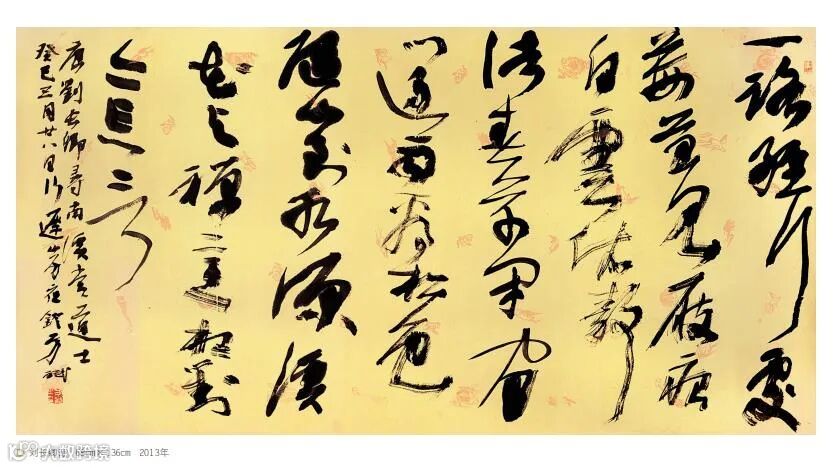 一路經行處
莓苔見屐痕
白雲依静
渚春草閉閒
門過雨看松色
隨山到水源溪
花與禪意相對
亦忘言
唐劉長卿尋南溪常道士
癸巳三月廿八日
刘长卿诗 68cm×136cm 2013年
大数跨境